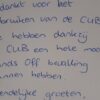 dankt voor het
bruiken van de CLUB
e hebben dankzij
CLUB een hele mooi
nds Off bevalling
unnen hebben.
endelijke groeten,